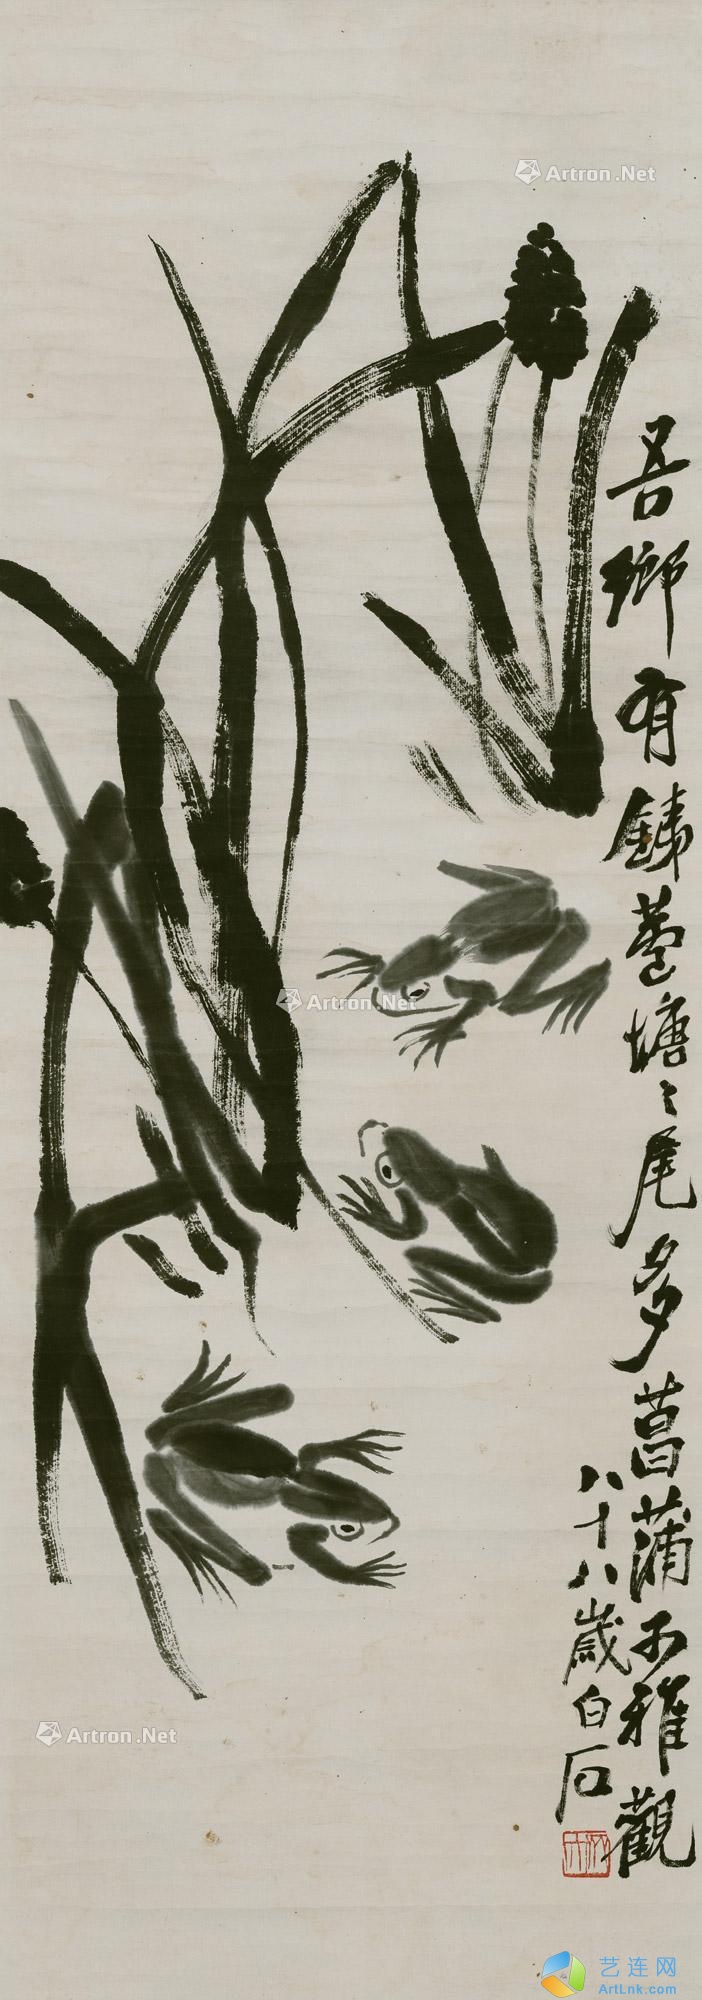 Artron.Net
吾鄉有鏽蓮塘々尾多菖蒲可雅觀
八十八歲白石
Artron.Net
Artron.Net
艺连网
ArtLnk.com